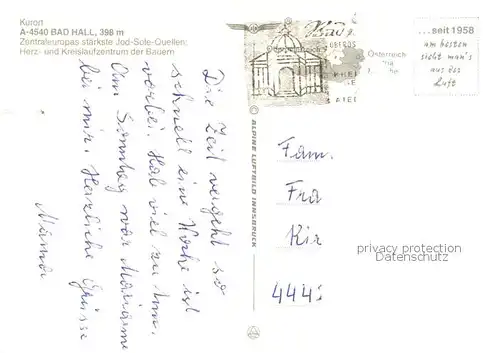 Kurort
A-4540 BAD HALL, 398 m
Zentraleuropas stärkste Jod-Sole-Quellen;
Herz- und Kreislaufzentrum der Bauern
Die Zeit vergeht so
schnell eine Woche ist
vorbei. Hab viel zu tun.
Am Sonntag war Marianne
bei mir. Herzliche Grüsse
Mama
ALPINE LUFTBILD INNSBRUCK
Österreich
...seit 1958
am besten
sieht man's
aus der
Luft
Fam.
Fra
Kir
444
privacy protection
Datenschutz